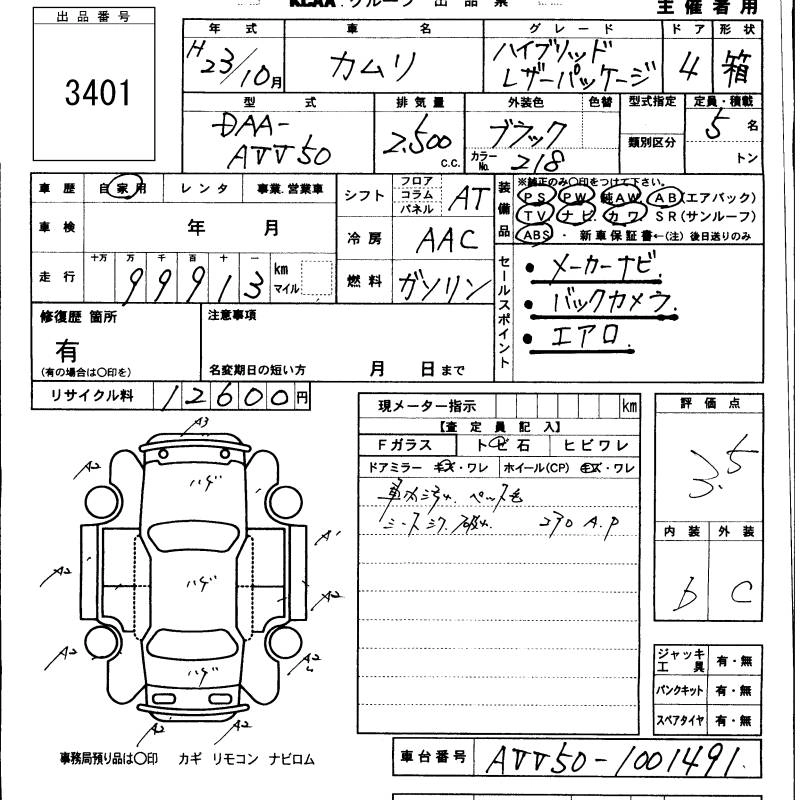 KCAA グループ 出品票
主催者用
出品番号
3401
年式 車名 グレード ドア 形状
H23/10月 カムリ ハイブリッド レザーパッケージ 4 箱
型式 排気量 外装色 色替 型式指定 定員・積載
DAA-AVV50 2,500 C.C. ブラック カラーNo. 218 類別区分 5 名
トン
車歴 自家用 レンタ 事業.営業車
車検 年 月
走行 十万 万 千 百 十 一 99913 km マイル
シフト フロア コラム パネル AT
冷房 AAC
燃料 ガソリン
装備品 ※純正のみ〇印をつけて下さい。
PS PW 純AW AB(エアバック)
TV ナビ カワ SR(サンルーフ)
ABS ・ 新車保証書←(注) 後日送りのみ
セールスポイント
・メーカーナビ
・バックカメラ.
・エアロ.
修復歴 箇所
有
(有の場合は〇印を)
注意事項
名変期日の短い方 月 日まで
リサイクル料 12600円
現メーター指示 km
【査定員記入】
Fガラス トビ石 ヒビワレ
ドアミラー キズ・ワレ ホイール(CP) キズ・ワレ
エアロ A.P
評価点
3.5
内装 外装
b C
ジャッキ工具 有・無
パンクキット 有・無
スペアタイヤ 有・無
A3
A2
ハゲ
A2
A1
ハゲ
A2
A2
A2
ハゲ
A2
A2
A2
事務局預り品は〇印 カギ リモコン ナビロム
車台番号 AVV50-1001491.